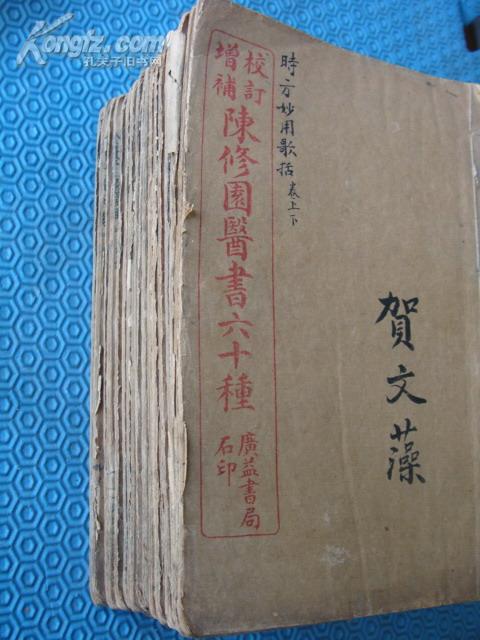 Kongfz.com
孔夫子旧书网
校訂
增補
陳修園醫書六十種
廣益書局
石印
時方妙用歌括卷上下
賀文藻